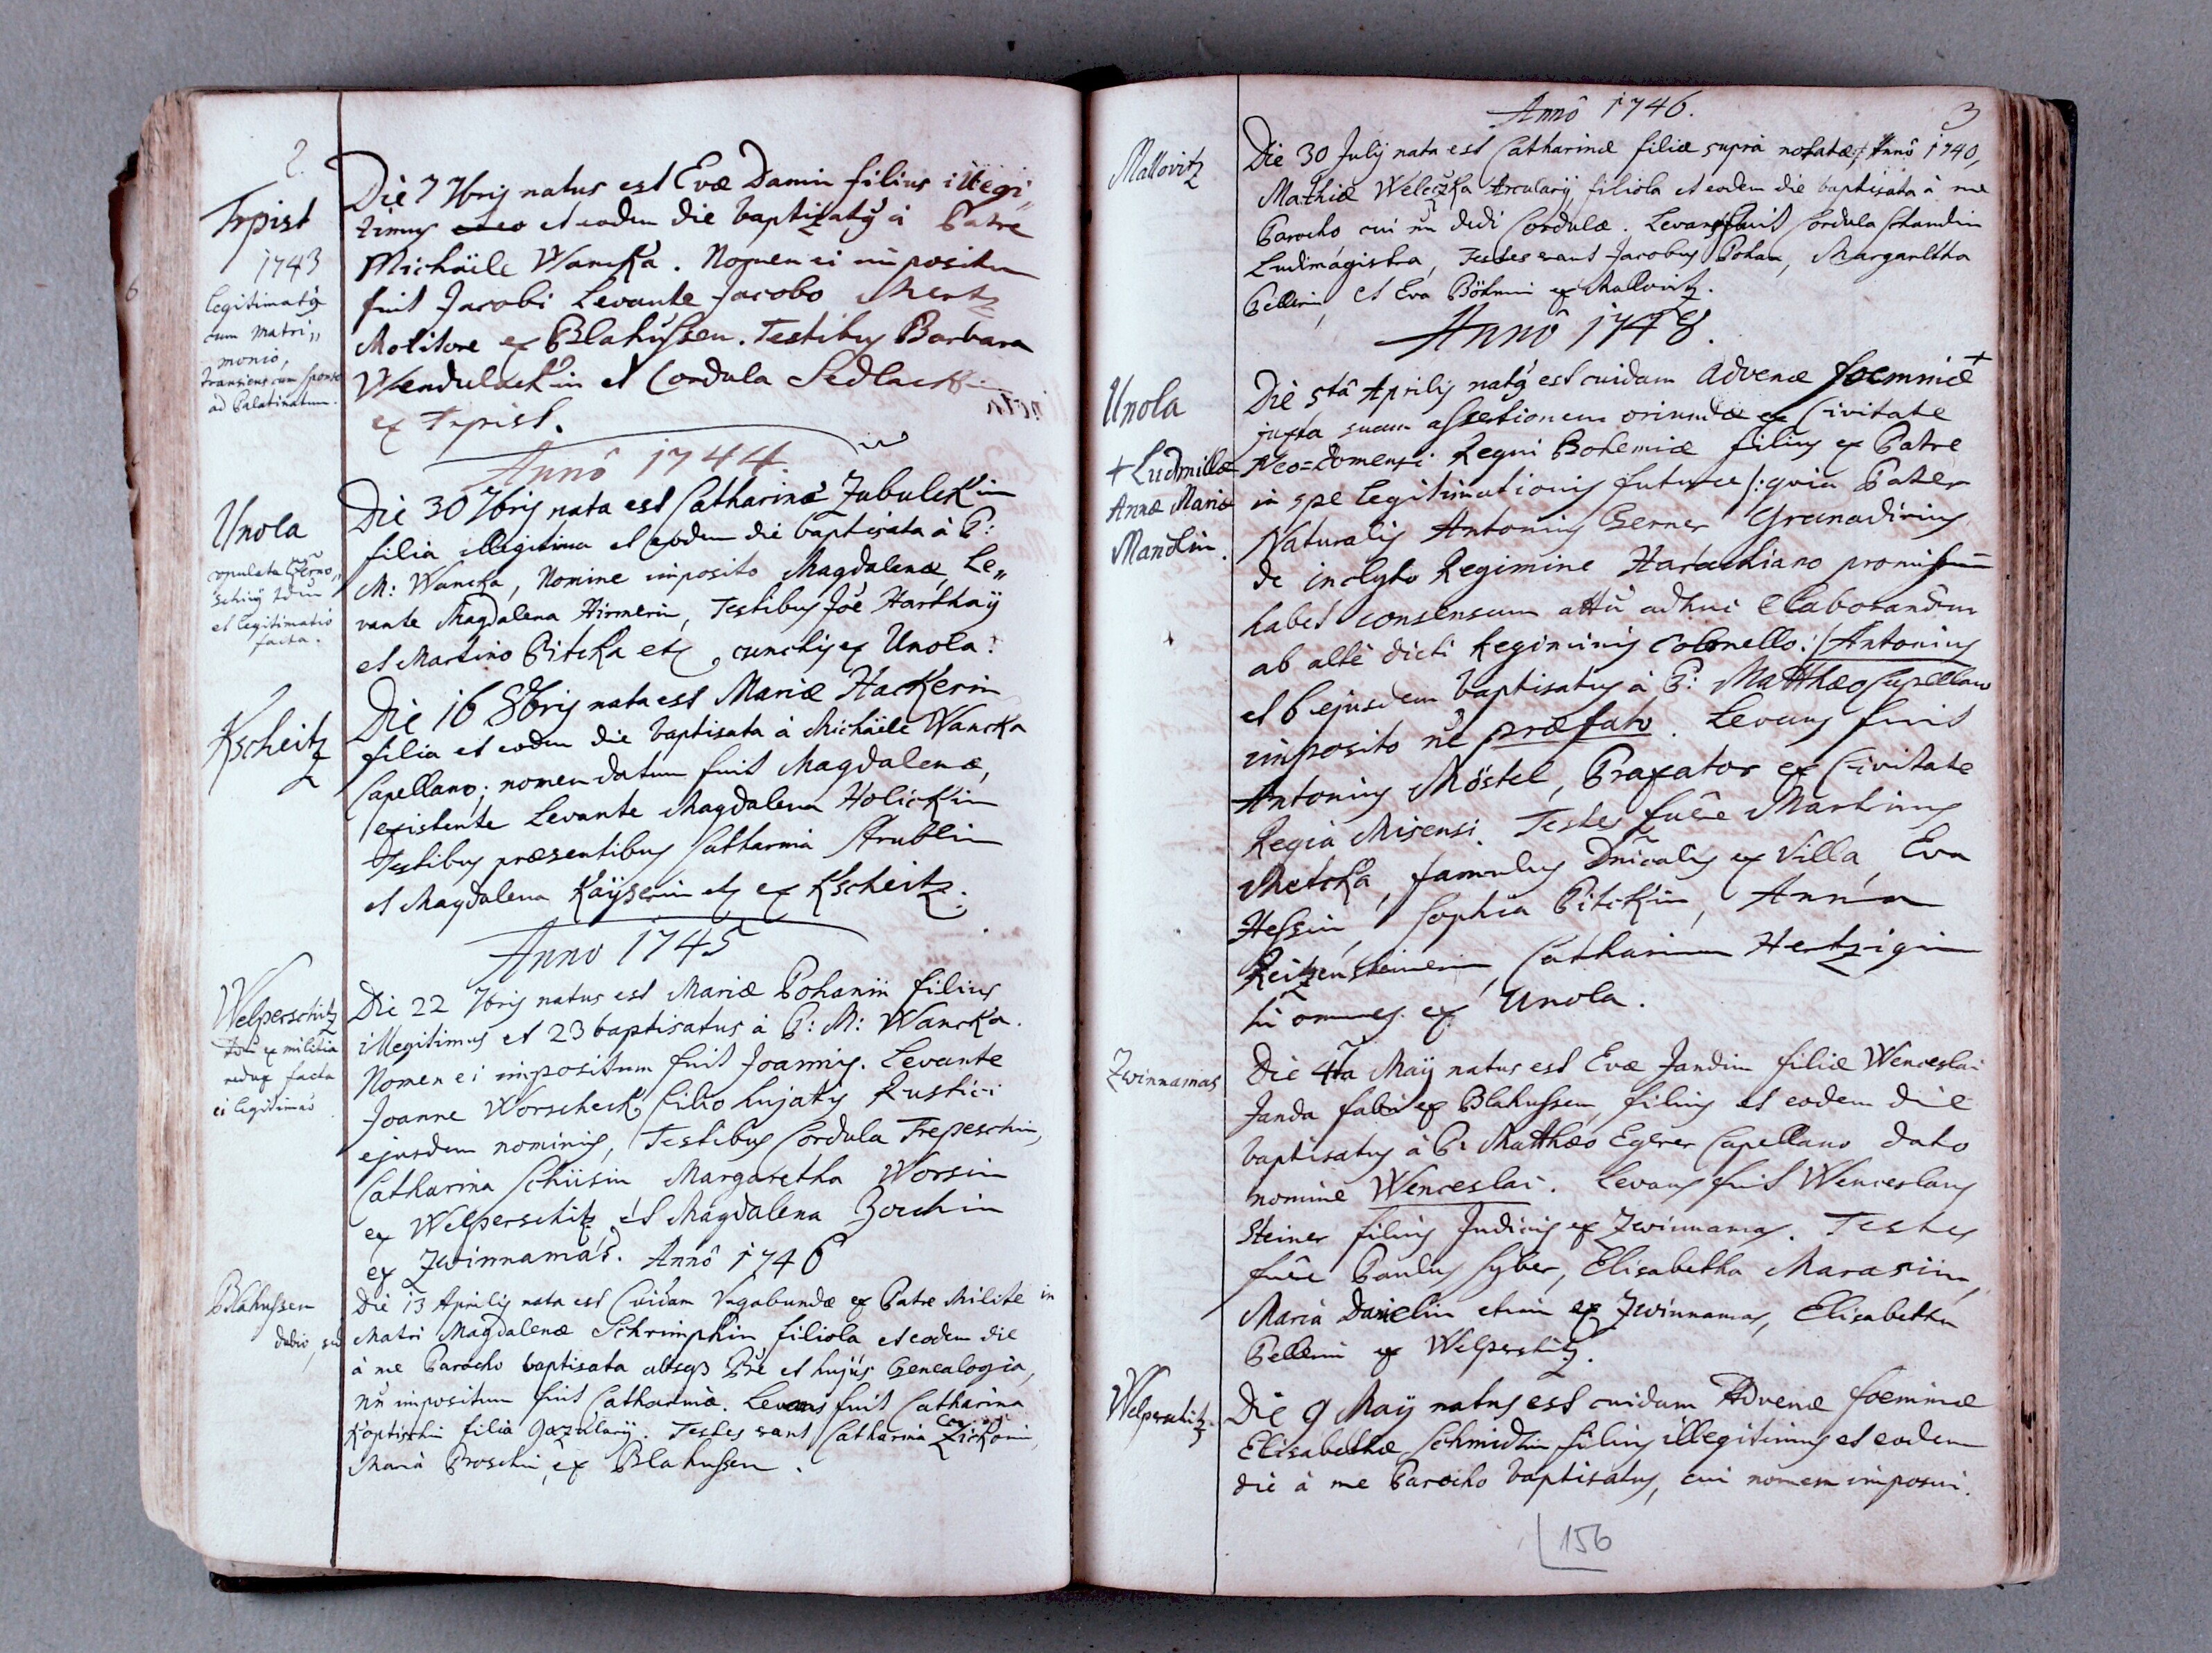 2.
Trpist
1743
legitimatq
cum matri„
monio,
transiens cum sponso
ad Palatinatum.
Die 7 7bris natus est Evæ Damin filius illegi„
timus et eodem die baptizatq à Patre
Michäile Wancka. Nomen ei impositum
fuit Jacobi Levante Jacobo Mertz
Molitore ex Blahussen. Testibus Barbara
Wendulackin et Cordula Sedlackin
ex Trpist.
Annô 1744.
Unola
copulata
et legitimatio
facta.
Die 30 7bris nata est Catharinæ Zubulckin
filia illegitima et eodem die baptisata à P:
M: Wancka, Nomine imposito Magdalenæ, Le„
vante Magdalena Hirmerin, Testibus Joe Harthaÿ
et Martino Pitcka etc, cunctis ex Unola.
Kscheitz
Die 16 8bris nata est Mariæ Hackerin
filia et eodem die baptisata à Michäile Wancka
Capellano; nomen datum fuit Magdalenæ,
existente Levante Magdalena Holickin
Testibus præsentibus Catharina Strublin
et Magdalena Kaÿserin etc ex Kscheitz.
Anno 1745
Welperschitz
ex militia
redux facta
ei legitimaõ
Die 22 7bris natus est Mariæ Pohanin filius
illegitimus et 23 baptisatus à P: M: Wancka.
Nomen ei impositum fuit Joannis. Levante
Joanne Worscheck, filio hujatis Rustici
ejusdem nominis, Testibus Cordula Trepeschin,
Catharina Schüsin Margaretha Worsin
ex Welperschitz et Magdalena Zochin
ex Zwinnamas. Annô 1746
Blahussen
Die 13 Aprilis nata est Cuidam Vagabundæ ex Patre Milite in
dubio, sed Matri Magdalenæ Schrimphin filiola, et eodem die
à me Parocho baptisata absq Pre et hujus Genealogia,
nñ impositum fuit Catharinæ. Levans fuit Catharina
Köptischin filia Gazularij. Testes erant Catharina Zickonin,
Maria Proschin, ex Blahussen.
Annô 1746.
3
Mallovitz
Die 30 Julij nata est Catharinæ filiæ supra notatæ, Annô 1740,
Mathiæ Weleczka Arcularij, filiola et eodem die baptisata à me
Parocho cui nñ dedi Cordulæ. Levans fuit Cordula Schandin
Ludimagistra, Testes erant Jacobus Pohan, Margaretha
Pellerin, et Eva Böhmin ex Mallovitz.
Annô 1748.
Unola
+ Ludmillæ
Annæ Mariæ
Mandlin.
Die 5tâ Aprilis natq est cuidam Advenæ foeminæ +
juxta suam assertionem oriundæ ex Civitate
Neo=Domensi Regni Bohemiæ filius ex Patre
in spe legitimationis futuræ /: quia Pater
Naturalis Antonius Gerner Granadirius
de inclyto Regimine Harachiano promissum
habet consensum attñ adhuc elaborandum
ab alte dicti Regiminis Colonello :/ Antonius
et 6 ejusdem baptisatus à P: Matthæo Capellano
imposito ñe præfato. Levans fuit
Antonius Möstel, Praxator ex Civitate
Regia Misensi. Testes fuêre Martinus
Metcka, famulus Dnicalis ex Villa, Eva
Hessin, Sophia Pitckin, Anna
Reitzensteinerin, Catharina Hertzigin
hi omnes ex Unola.
Zwinnamas
Die 4ta Maÿ natus est Evæ Jandin filiæ Wenceslai
Janda fabri ex Blahussen, filius et eodem die
baptisatus à P: Matthæo Egerer Capellano dato
nomine Wenceslai. Levans fuit Wenceslaus
Steiner filius Judicis ex Zwinnamas. Testes
fuêre Paulus Syber, Elisabetha Marasin,
Maria Danielin etiam ex Zwinnamas, Elisabetha
Pellerin ex Welperschitz.
Welperschitz.
Die 9 Maÿ natus est cuidam Advenæ foeminæ
Elisabethæ Schmidtin filius illegitimus et eodem
die à me Parocho baptisatus, cui nomen imposui.
156